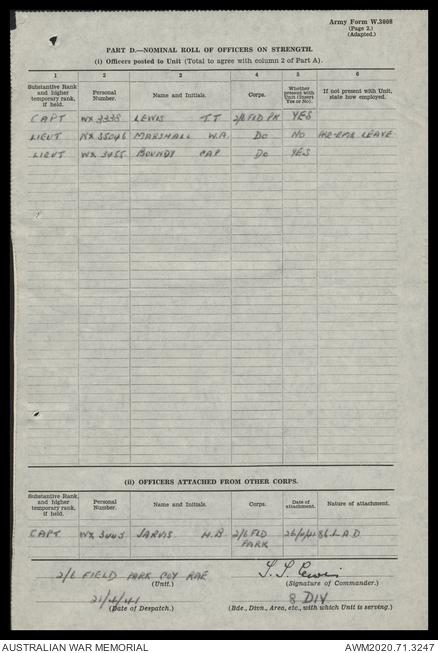 Army Form W.3008
(Page 2.)
(Adapted.)
PART D.—NOMINAL ROLL OF OFFICERS ON STRENGTH.
(i) Officers posted to Unit (Total to agree with column 2 of Part A).
1 2 3 4 5 6
Substantive Rank and higher temporary rank, if held. Personal Number. Name and Initials. Corps. Whether present with Unit (Insert Yes or No). If not present with Unit, state how employed.
CAPT WX 3338 LEWIS T.T 2/6 FLD PK YES
LIEUT MARSHALL W.A. Do NO PRE-EMB LEAVE
LIEUT WX 3455 BOUNDY CAP Do YES
(ii) OFFICERS ATTACHED FROM OTHER CORPS.
Substantive Rank and higher temporary rank, if held. Personal Number. Name and Initials. Corps. Date of attachment. Nature of attachment.
CAPT JARVIS H.B. 2/6 FLD PARK L A D
2/6 FIELD PARK COY RAE
(Unit.) (Signature of Commander.)
21/4/41 8 DIV
(Date of Despatch.) (Bde., Divn., Area, etc., with which Unit is serving.)
AUSTRALIAN WAR MEMORIAL AWM2020.71.3247